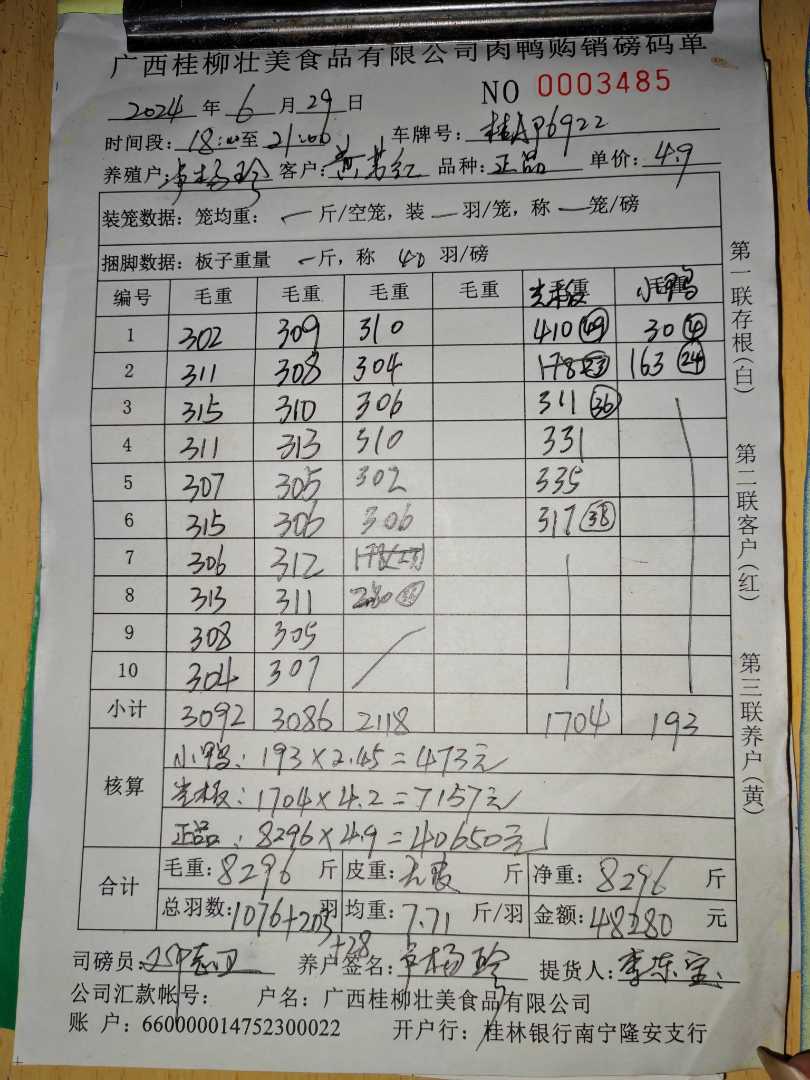 广西桂柳壮美食品有限公司肉鸭购销磅码单
NO 0003485
2024 年 6 月 29 日
时间段: 18:00 至 21:00 车牌号: 桂AP6922
养殖户: 卢杨玲 客户: 品种: 正品 单价: 4.9
装笼数据: 笼均重: 一 斤/空笼, 装 一 羽/笼, 称 一 笼/磅
捆脚数据: 板子重量 一 斤, 称 40 羽/磅
编号 毛重 毛重 毛重 毛重 光板 小鸭
1 302 309 310 410 (49) 30 (4)
2 311 308 304 178 (23) 163 (24)
3 315 310 306 311 (36)
4 311 313 310 331
5 307 305 302 335
6 315 306 306 317 (38)
7 306 312
8 313 311
9 308 305
10 304 307
小计 3092 3086 2118 1704 193
核算
小鸭: 193×2.45=473元
光板: 1704×4.2=7157元
正品: 8296×4.9=40650元
合计
毛重: 8296 斤 皮重: 斤 净重: 8296 斤
总羽数: 1076+205 羽 均重: 7.71 斤/羽 金额: 48280 元
+28
司磅员: 养户签名: 卢杨玲 提货人: 李东宝
公司汇款帐号: 户名: 广西桂柳壮美食品有限公司
账 户: 660000014752300022 开户行: 桂林银行南宁隆安支行
第一联存根(白)
第二联客户(红)
第三联养户(黄)